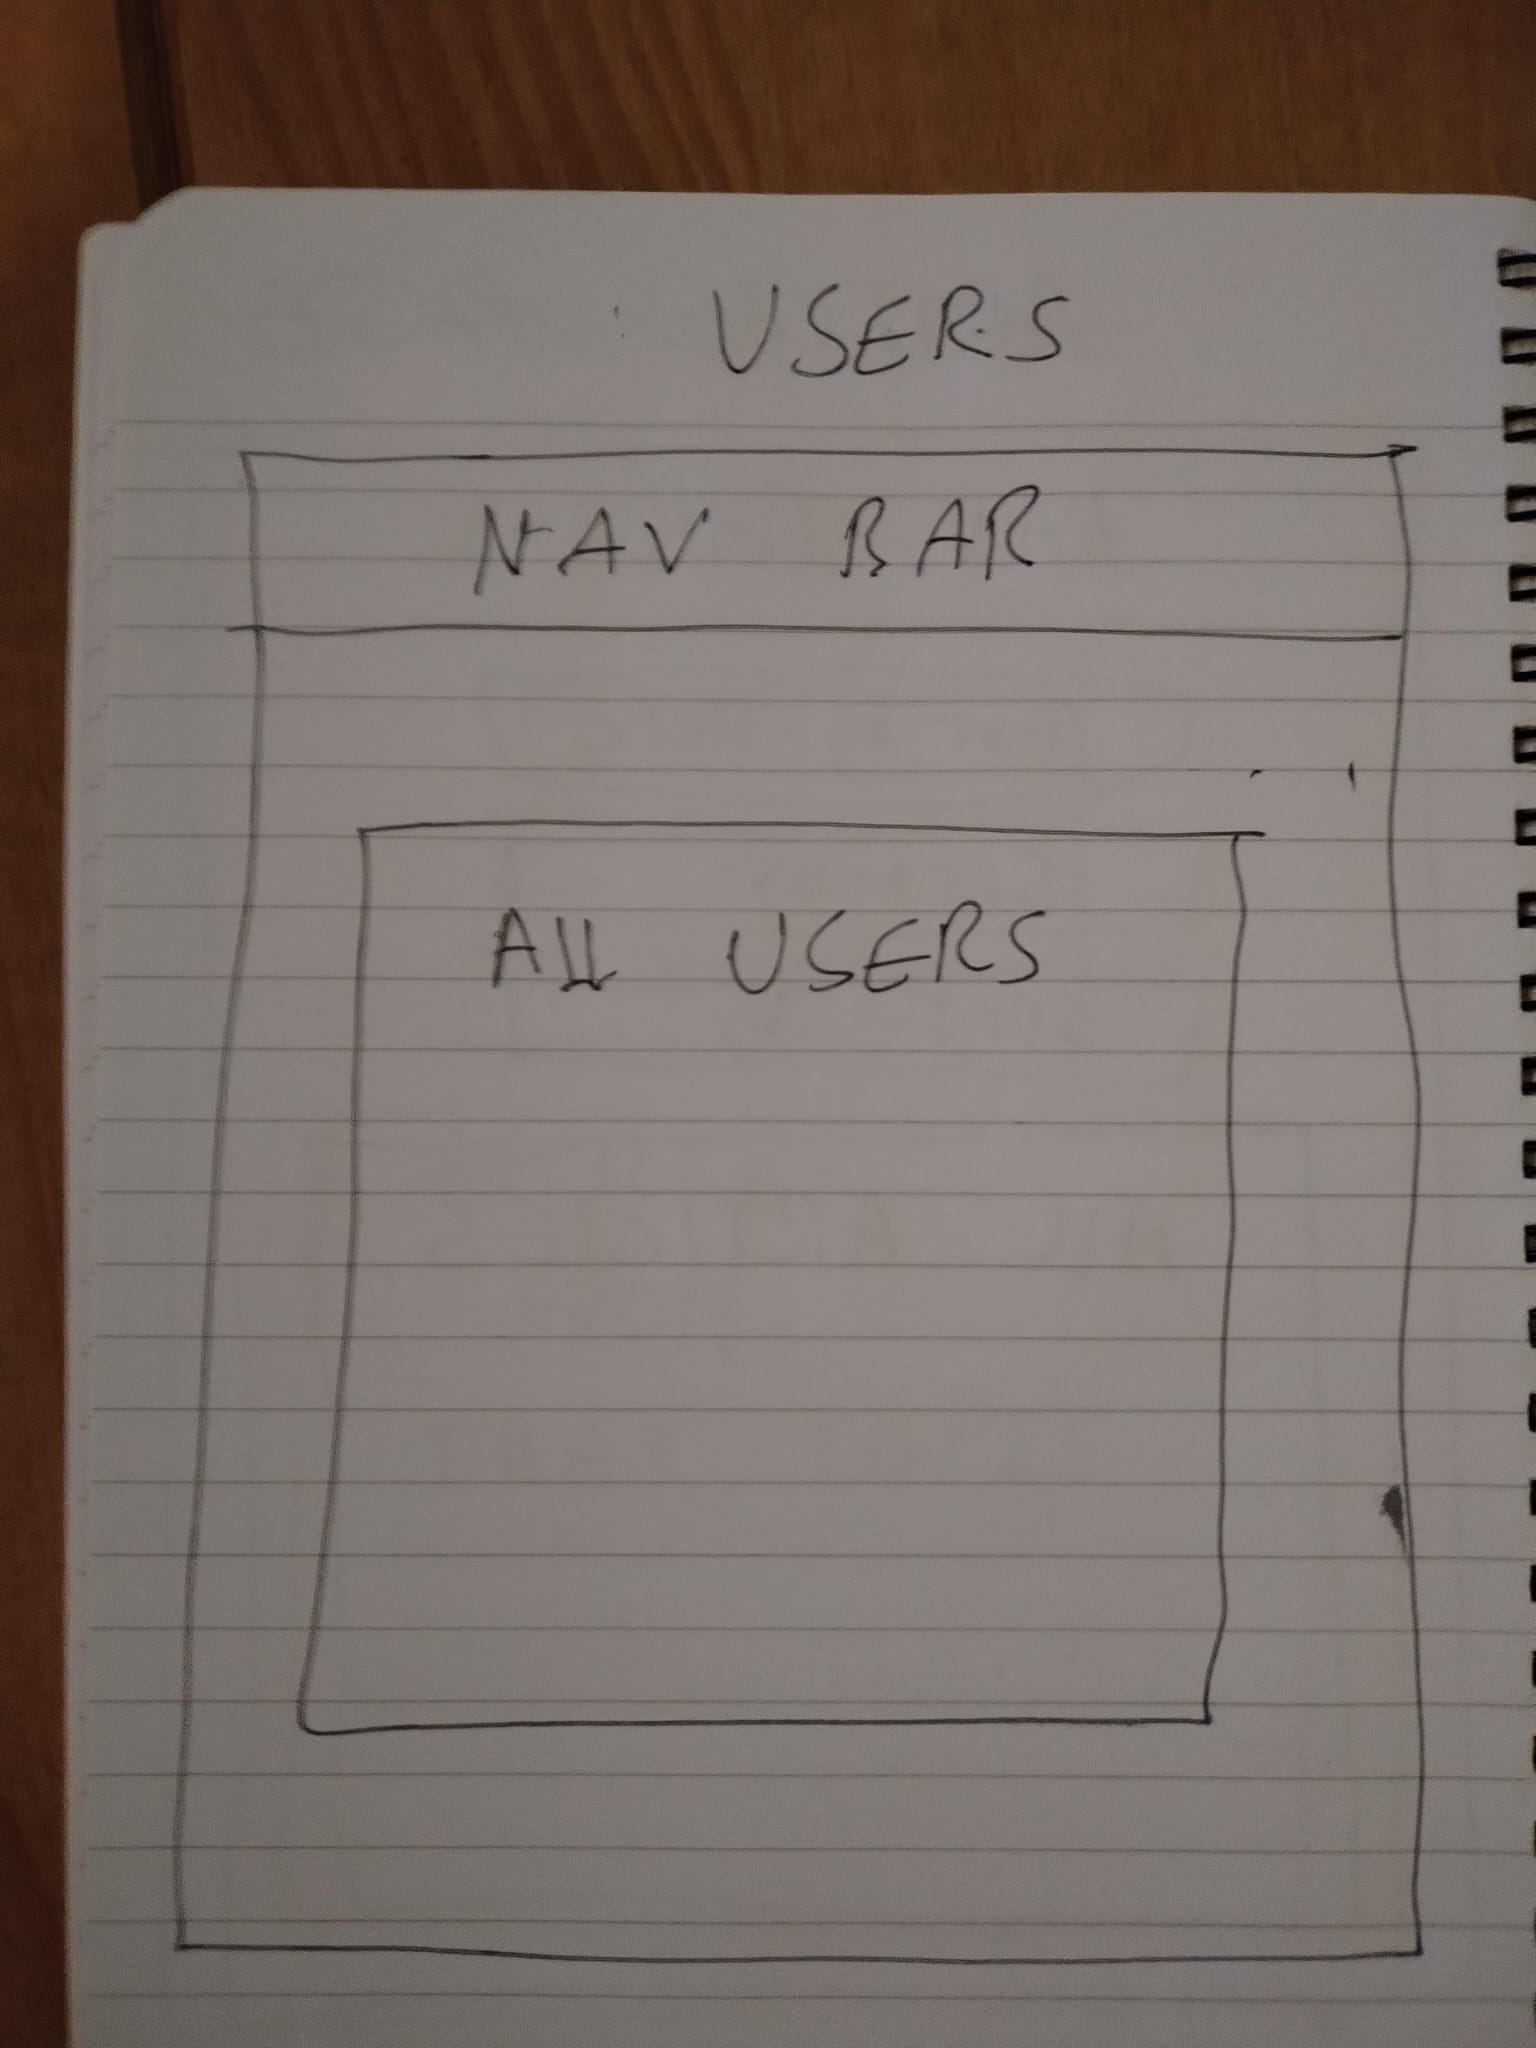 USERS
NAV BAR
All USERS